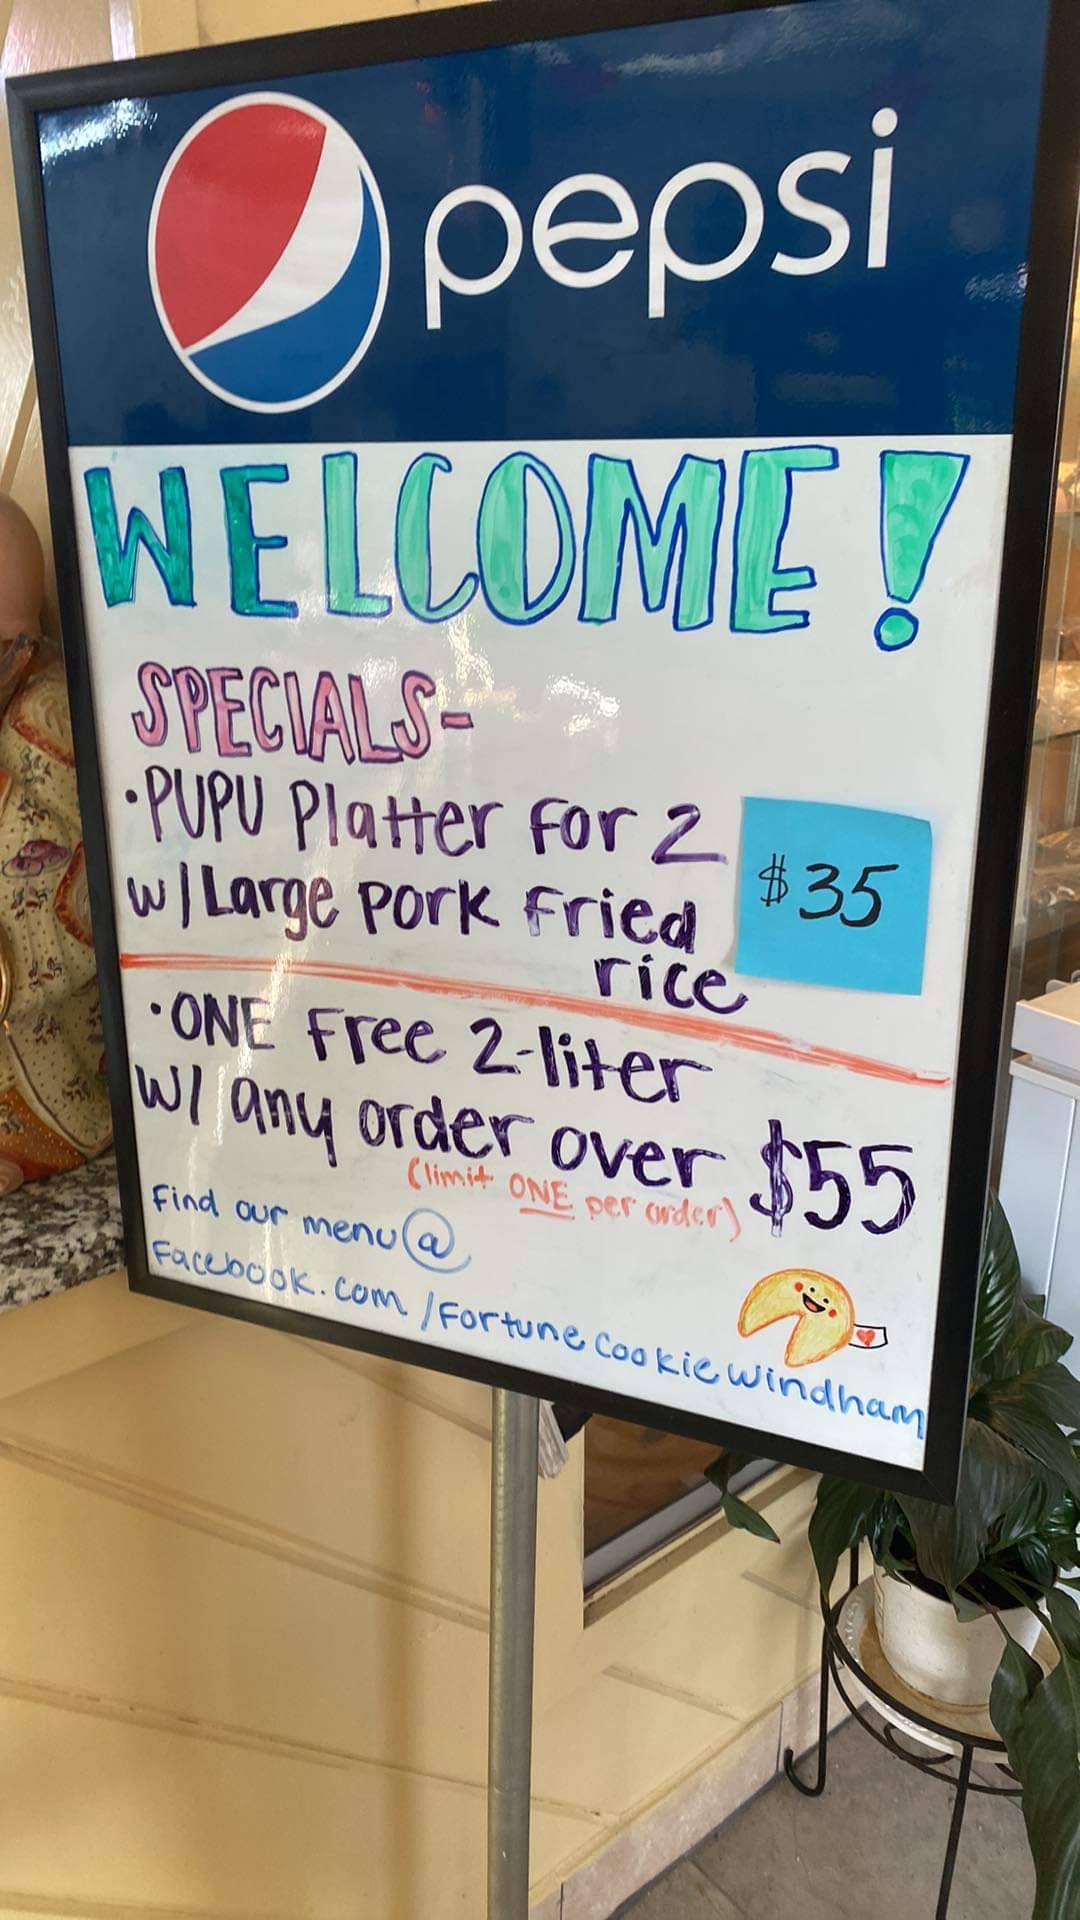 pepsi
WELCOME!
SPECIALS-
•PUPU Platter For 2
w/Large Pork Fried
rice
$35
•ONE Free 2-liter
w/ any order over $55
(limit ONE per order)
Find our menu @
Facebook.com/FortuneCookieWindham